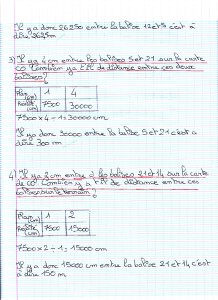 Il y a donc 26250 entre la balise 12 et 5 c'est à
dire 262,5m
3) Il y a 4 cm entre les balises 5 et 21 sur la carte
CO. Combien y a t'il de distance entre ces deux
balises?
Plan (cm) 1 4
Réalité (cm) 7500 30000
7500 x 4 ÷ 1 = 30000 cm
Il y a donc 30000 entre la balise 5 et 21 c'est à
dire 300 m
4) Il y a 2 cm entre les balises 21 et 14 sur la carte
de CO. Combien y a t'il de distance entre ces
balises sur le terrain?
Plan (cm) 1 2
Réalité (cm) 7500 15000
7500 x 2 ÷ 1 = 15000 cm
Il y a donc 15000 cm entre la balise 21 et 14, c'est
à dire 150 m.